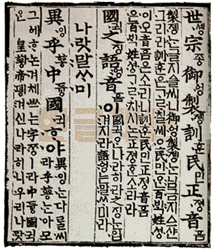 世솅宗종御엉製졩訓훈民민正졍音음
製졩는글지ᅀᅳᆯ씨니御엉製졩는님금지ᅀᅳ샨
그리라訓훈은ᄀᆞᄅᆞ칠씨오民민ᄋᆞᆫ百ᄇᆡᆨ姓셔ᇰ
이오音음은소리니訓훈民민正졍音음은百ᄇᆡᆨ
姓셔ᇰᄀᆞᄅᆞ치시논正졍ᄒᆞᆫ소리라
國귁之징語엉音음이
國귁ᄋᆞᆫ나라히라之징ᄂᆞᆫ입
겨지라語엉는말ᄊᆞ미라
나랏말ᄊᆞ미
異잉乎ᅘᅩᆼ中듀ᇰ國귁ᄒᆞ야
異잉ᄂᆞᆫ다ᄅᆞᆯ씨
라乎ᅘᅩᆼᄂᆞᆫ아모
그ᅌᅦᄒᆞ논겨체ᄡᅳᄂᆞᆫ字ᄍᆞᆼㅣ라中듀ᇰ國귁ᄋᆞᆫ
皇ᅘᅪᇰ帝뎽겨신나라히니우리나랏